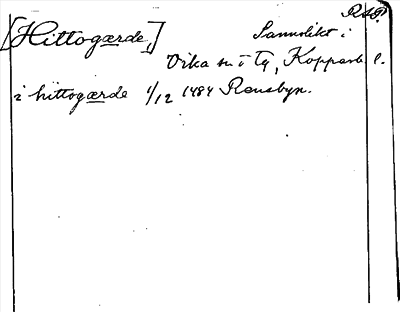 RAP.
[Hittogærde,] Sannolikt i
Vika sn i Tg, Kopparb l.
i hittogærde 1/12 1484 Rensbyn.